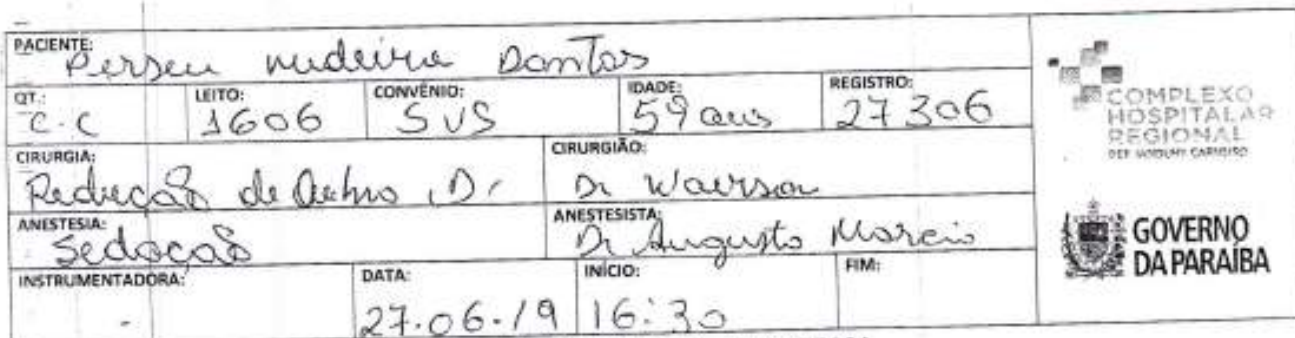 PACIENTE: Perseu Medeiros Dantas
QT.: C.C LEITO: 1606 CONVÊNIO: SUS IDADE: 59 anos REGISTRO: 27306
CIRURGIA: Redução de D. CIRURGIÃO: Dr
ANESTESIA: Sedação ANESTESISTA: Dr Augusto Marcio
INSTRUMENTADORA: - DATA: 27.06.19 INÍCIO: 16:30 FIM:
COMPLEXO
HOSPITALAR
REGIONAL
DEP. JANDUHY CARNEIRO
GOVERNO
DA PARAÍBA